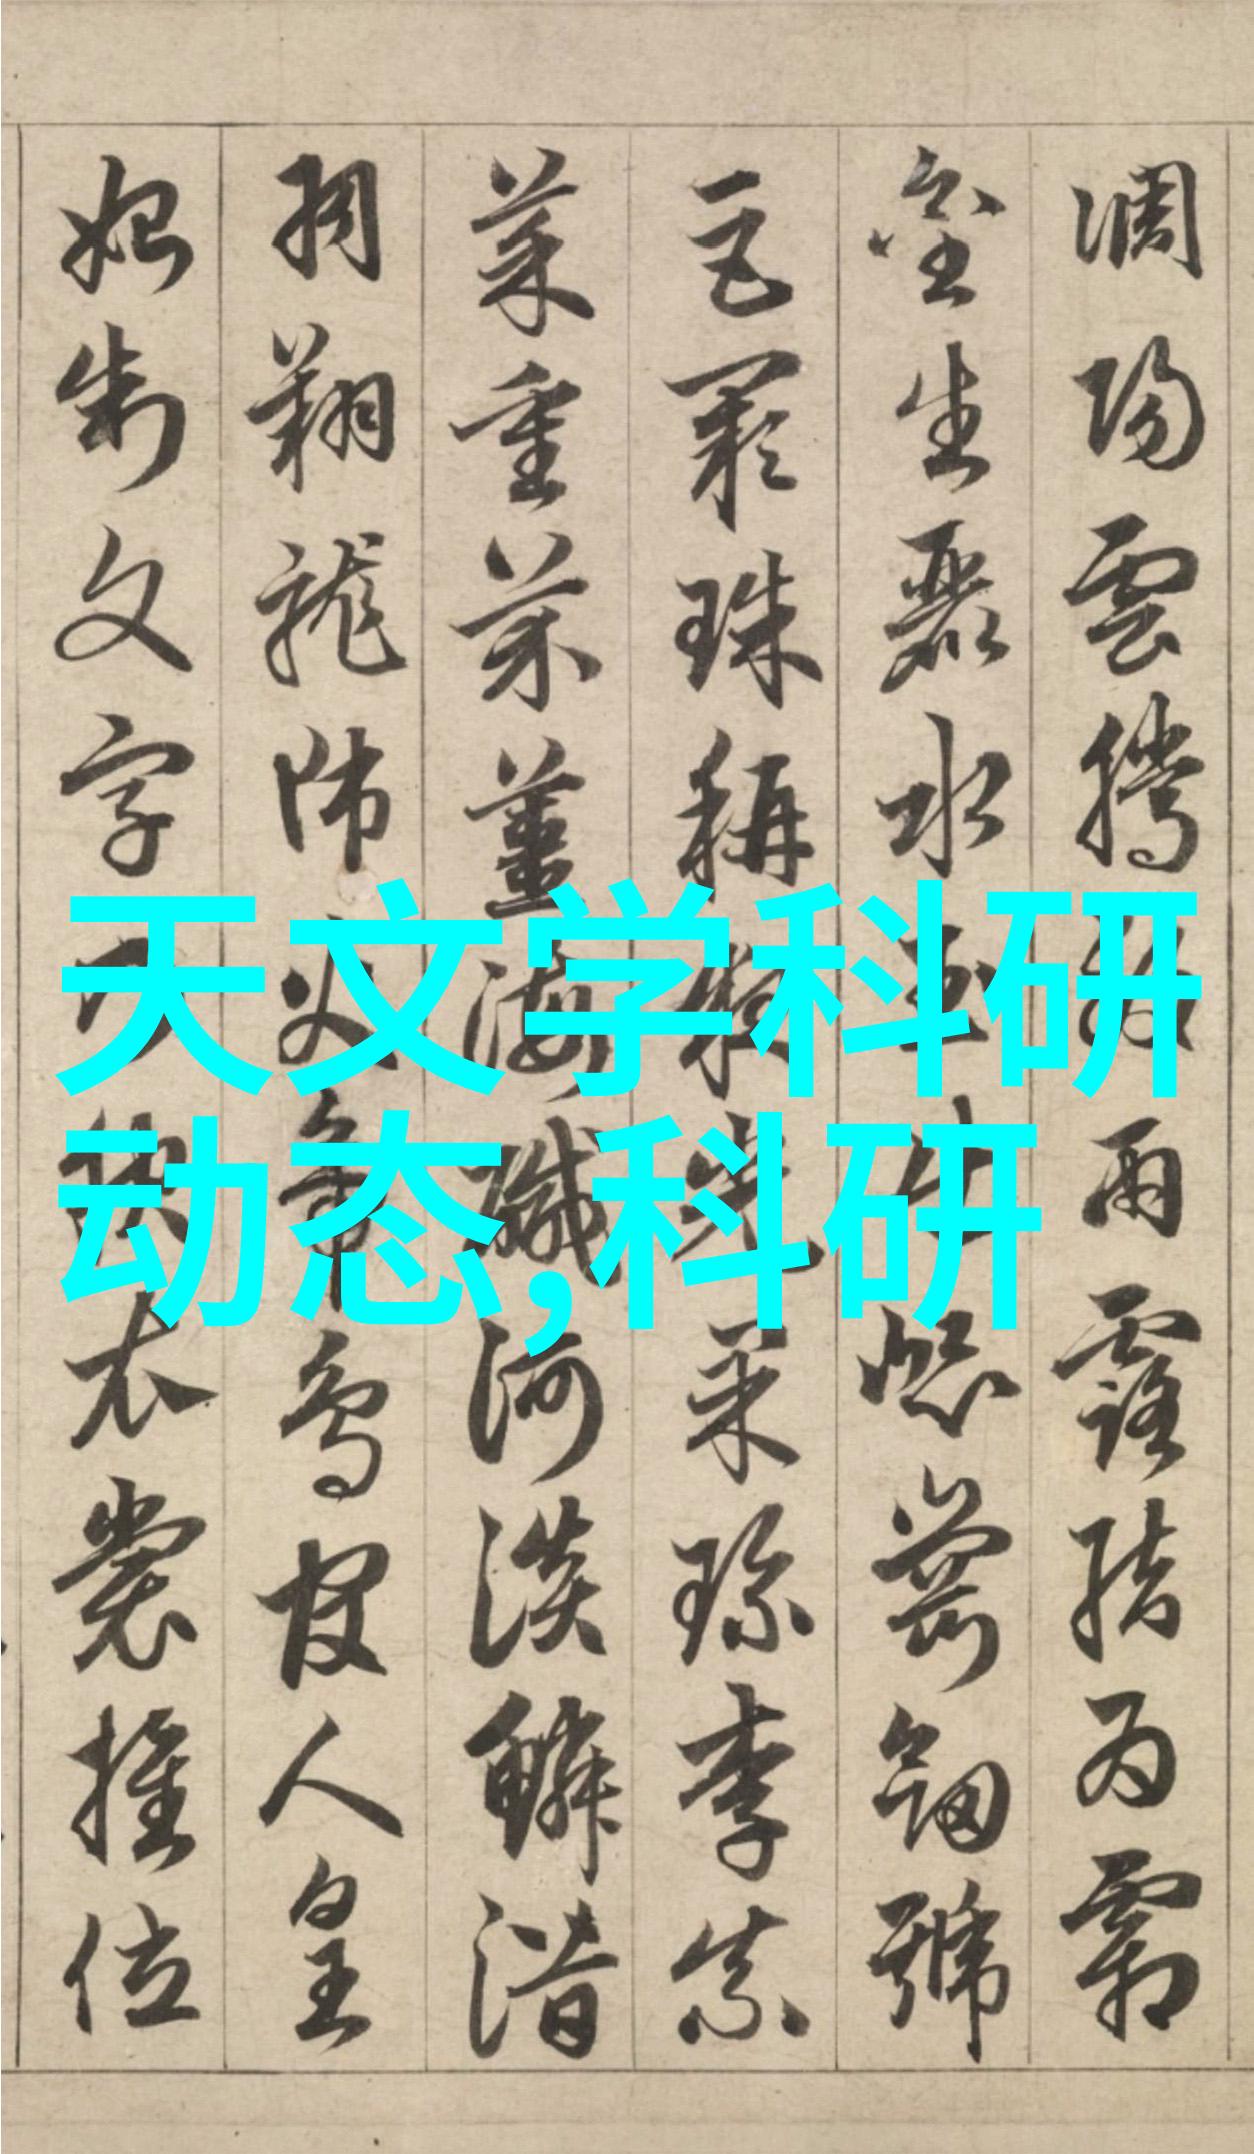 天文学科研
动态,科研
調陽雲騰致雨露結為霜
金生麗水玉出崑崗劒號
巨闕珠稱夜光果珍李柰
菜重芥薑海鹹河淡鱗潛
羽翔龍師火帝鳥官人皇
始制文字乃服衣裳推位